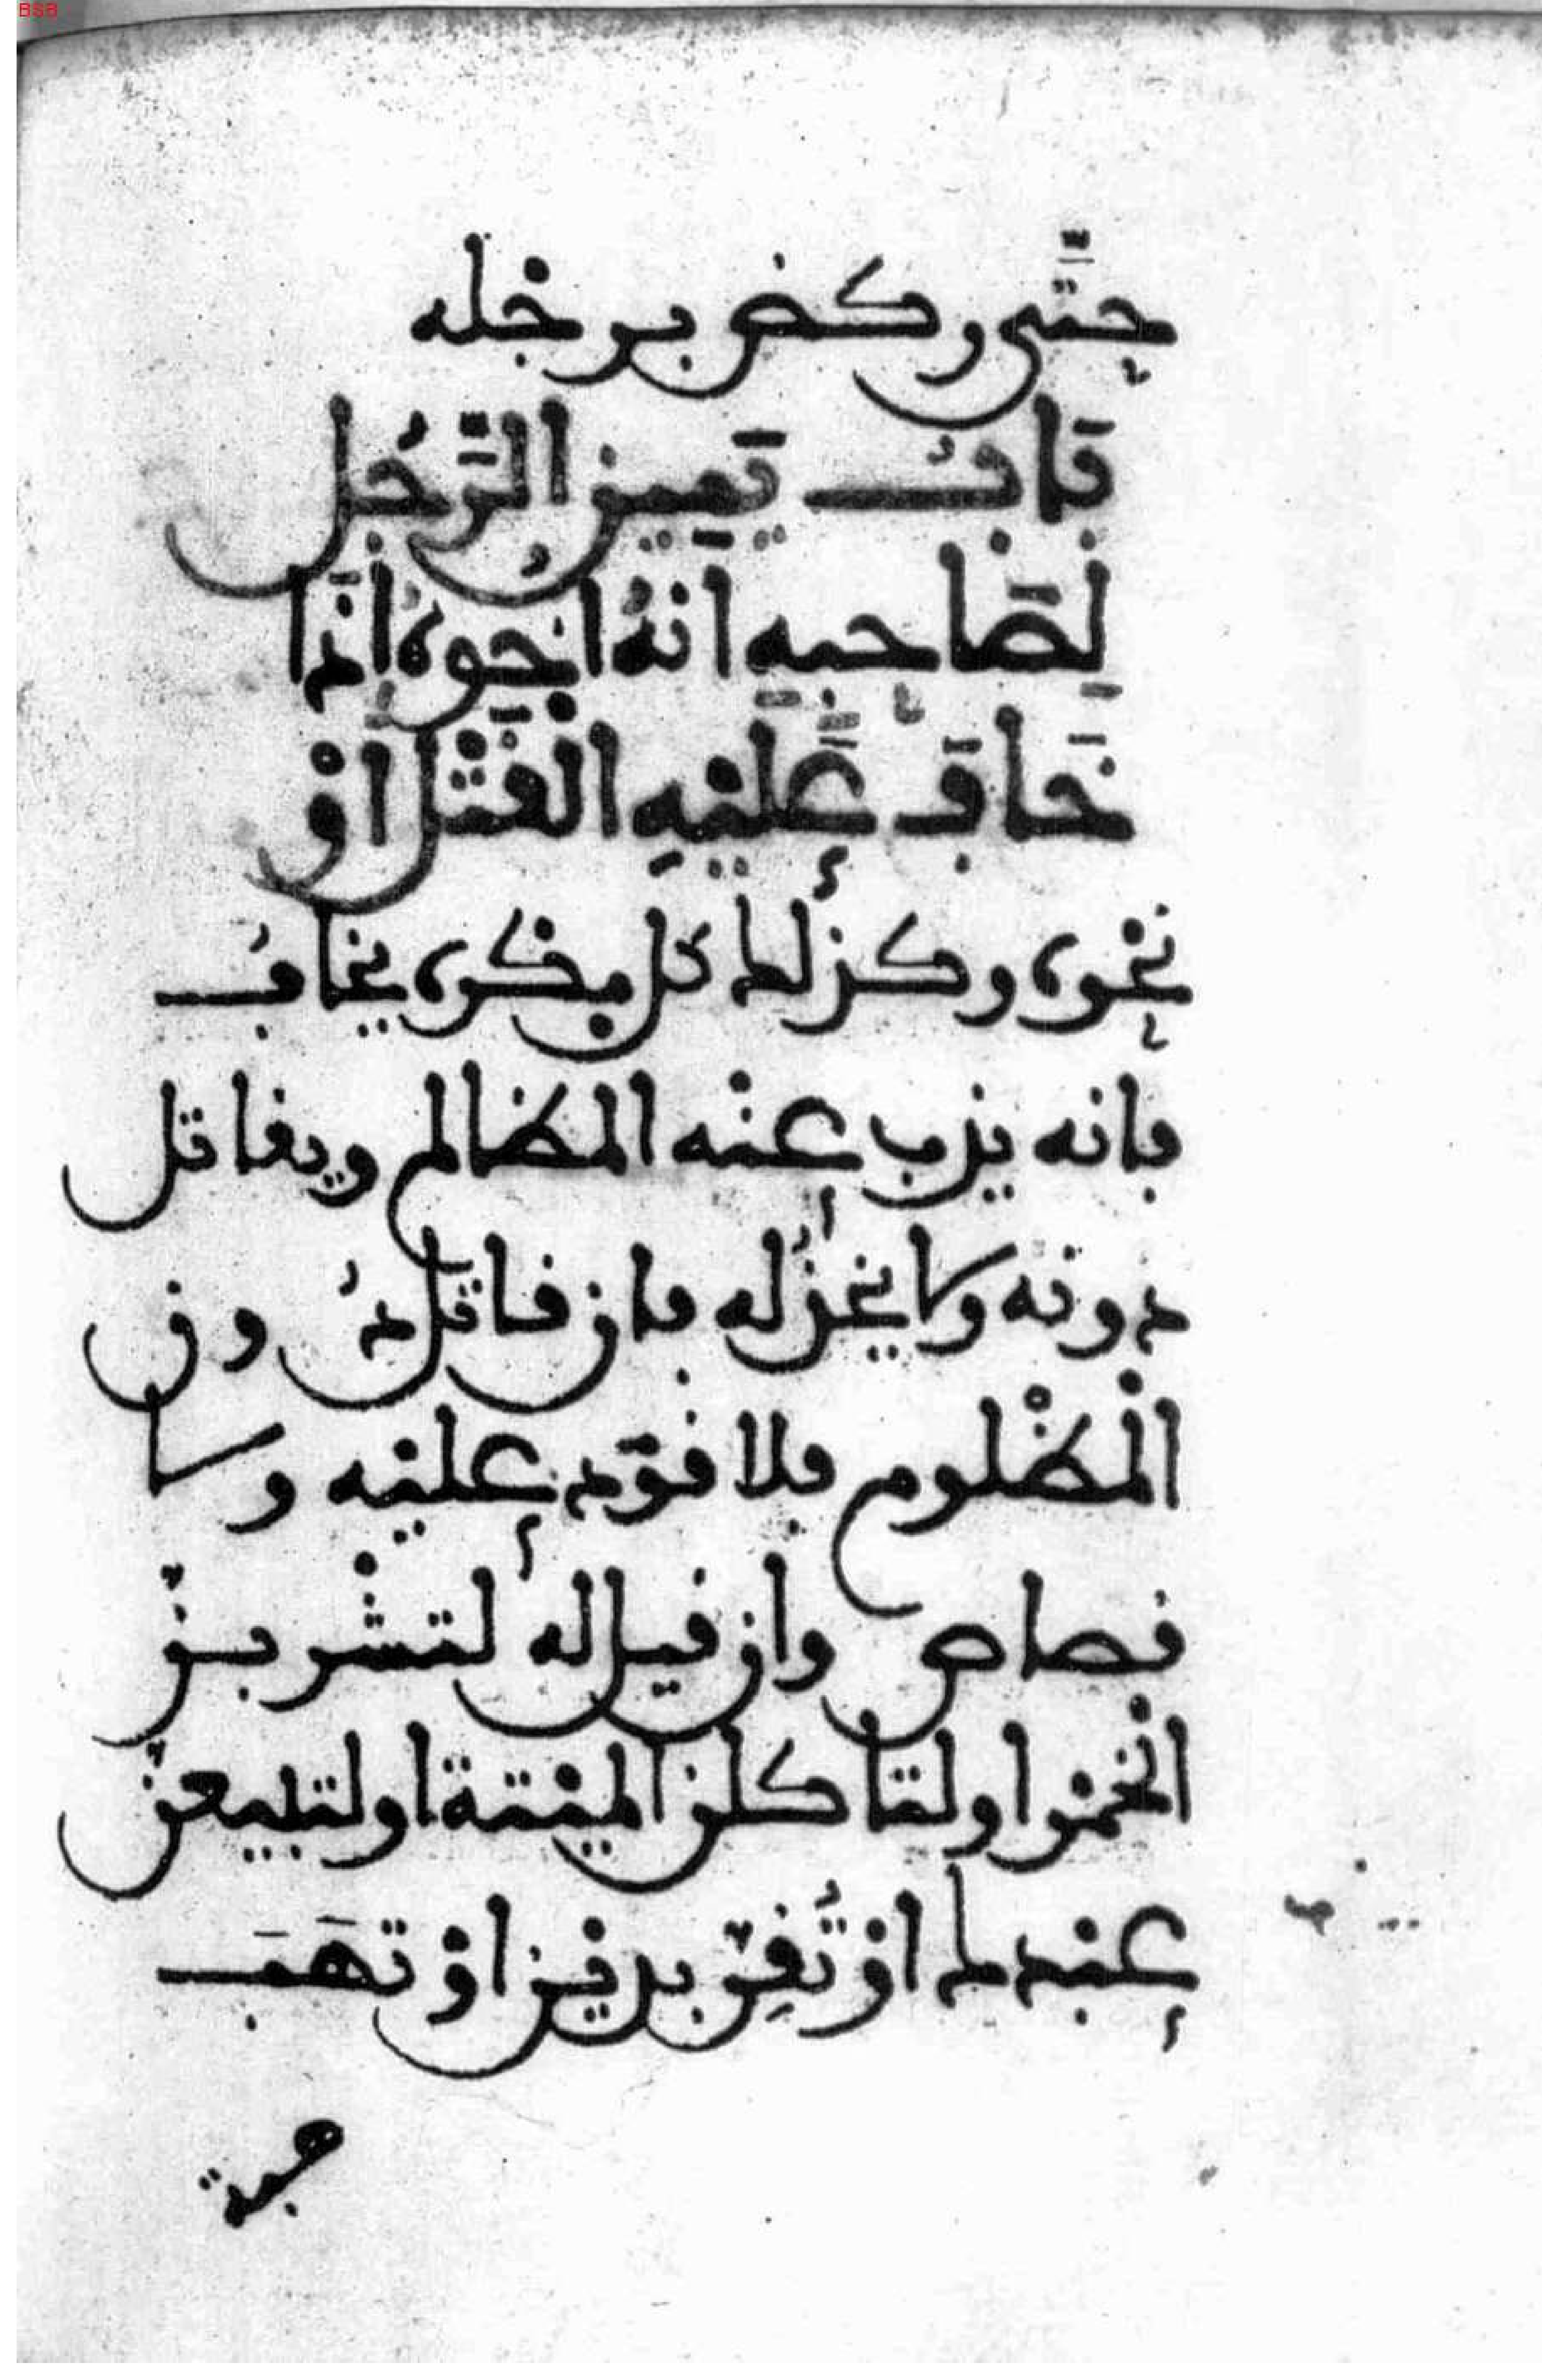 BSB
حَتَّى ركض برجله
بَابُ يَمِينِ الرَّجُلِ
لِصَاحِبِهِ اَنهُ اخُوهُ اذَا
خَافَ عَلَيْهِ الْقَتْلَ اَوْ
نحْوه وكذلك كل مكره يخافُ
فانه يذب عنْه المظالم ويقاتل
دونه ولا يخذُله فان قاتل دُون
الْمظْلوم فلا قوَد عليْه ولا
قصاص وان قيل له لتشْربنّ
الخمر او لتاكلن الميْتة او لتبيعنّ
عبْدك اوْ تُقِرّ بديْن اوْ تَهَبَ
هبة